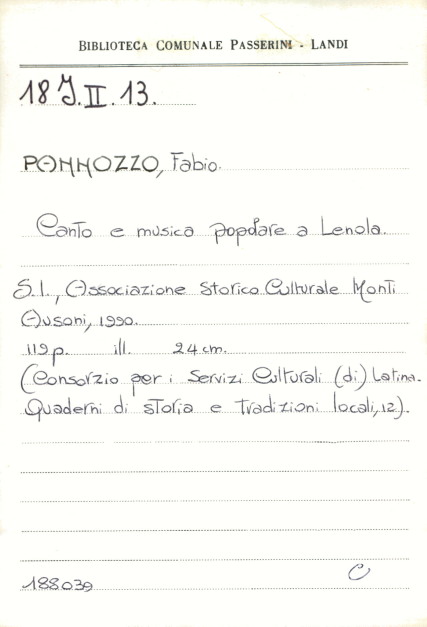 BIBLIOTECA COMUNALE PASSERINI - LANDI
18 J.II.13.
PANNOZZO, Fabio.
Canto e musica popolare a Lenola.
S.l., Associazione Storico Culturale Monti
Ausoni, 1990.
119 p. ill. 24 cm.
(Consorzio per i Servizi Culturali (di) Latina.
Quaderni di storia e tradizioni locali, 12).
188039 C